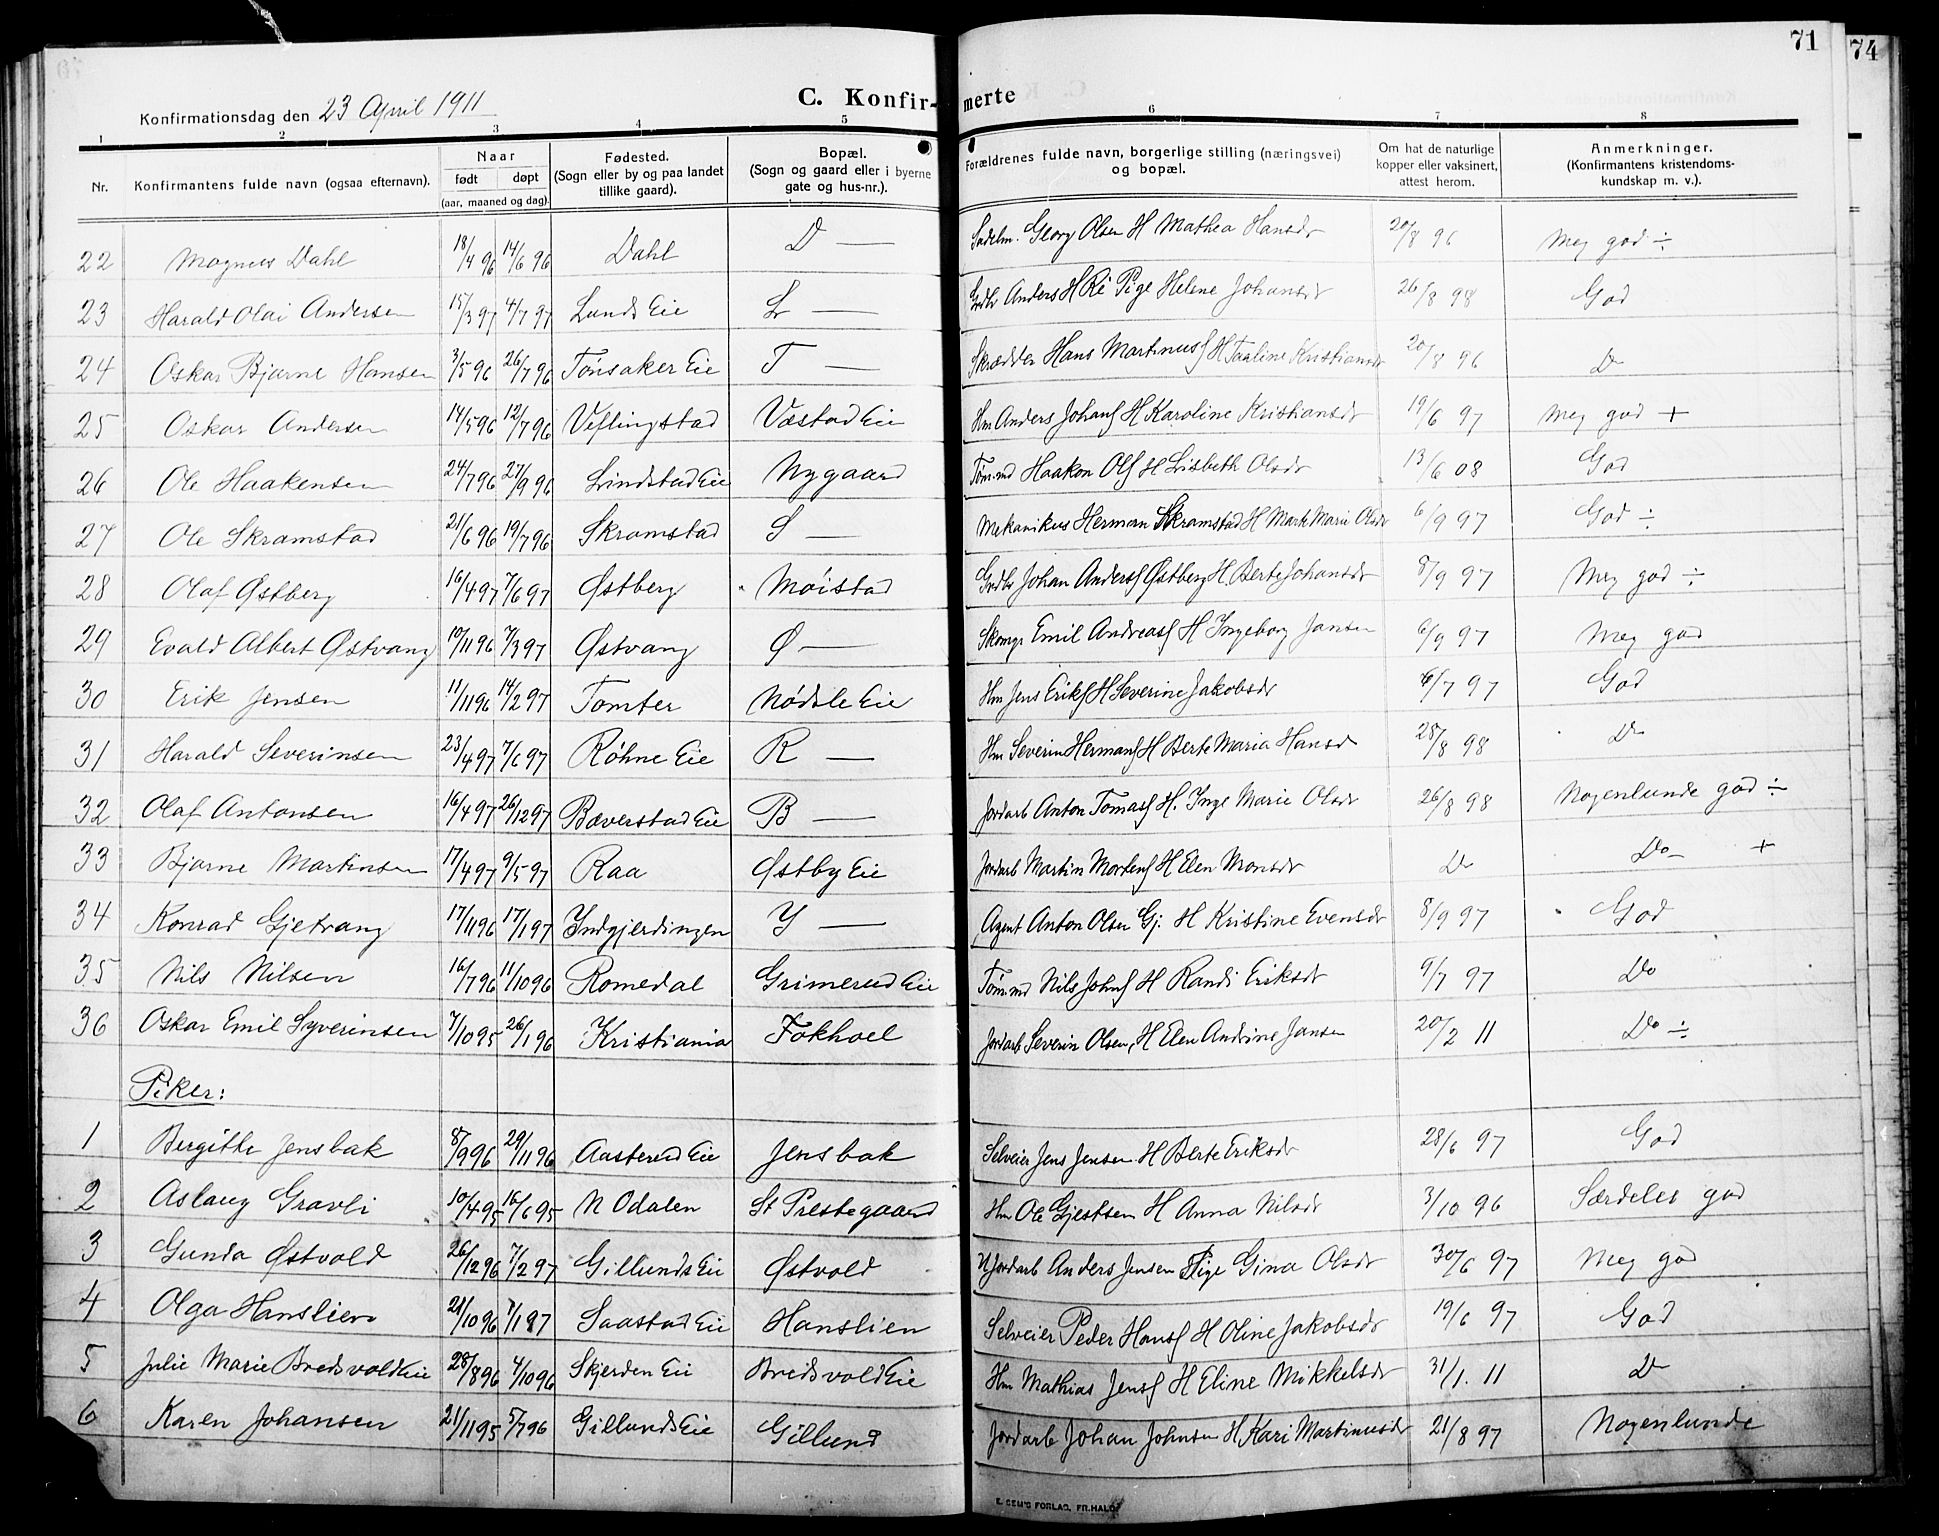 71
74
Konfirmationsdag den 23 April 1911
C. Konfir-
merte
1 2 3 4 5 6 7 8
Nr.
Konfirmantens fulde navn (ogsaa efternavn).
Naar
født døpt
(aar, maaned og dag).
Fødested.
(Sogn eller by og paa landet
tillike gaard).
Bopæl.
(Sogn og gaard eller i byerne
gate og hus-nr.).
Forældrenes fulde navn, borgerlige stilling (næringsvei)
og bopæl.
Om hat de naturlige
kopper eller vaksinert,
attest herom.
Anmerkninger.
(Konfirmantens kristendoms-
kundskap m. v.).
22 Magnus Dahl 18/4 96 14/6 96 Dahl D — Sadelm. Georg Olsen H Mathea Hansdr 20/8 96 Meg god ÷
23 Harald Olai Andersen 15/3 97 4/7 97 Lunds Eie L — Grdbr Anders H Ré Pige Helene Johansdr 26/8 98 God
24 Oskar Bjarne Hansen 3/5 96 26/7 96 Tønsaker Eie T — Skrædder Hans Martinuss H Tauline Kristiansdr 20/8 96 Do
25 Oskar Andersen 14/5 96 12/7 96 Veflingstad Vostad Eie Hm Anders Johans H Karoline Kristiansdr 19/6 97 Meg god +
26 Ole Haakensen 24/7 96 27/9 96 Lindstad Eie Nygaard Tøm.md Haakon Ols H Lisbeth Olsdr 13/6 08 God
27 Ole Skramstad 21/6 96 19/7 96 Skramstad S — Mekanikus Herman Skramstad H Mark Marie Olsdr 6/9 97 God ÷
28 Olaf Østberg 16/4 97 7/6 97 Østberg Møistad Grdbr Johan Anders Østberg H Berte Johansdr 8/9 97 Meg god ÷
29 Evald Albert Østvang 10/11 96 7/3 97 Østvang Ø — Skomgr Emil Andreass H Ingeborg Jansen 6/9 97 Meg god
30 Erik Jensen 11/11 96 14/2 97 Tomter Nødsle Eie Hm Jens Eriks H Severine Jakobsdr 6/7 97 God
31 Harald Severinsen 23/4 97 7/6 97 Røhne Eie R — Hm Severin Hermans H Berte Maria Hansd 28/8 98 Do
32 Olaf Antonsen 16/4 97 26/12 97 Bæverstad Eie B — Jordarb Anton Tomass H. Inge Marie Olsdr 26/8 98 Nogenlunde god ÷
33 Bjarne Martinsen 17/4 97 9/5 97 Raa Østby Eie Jordarb Martin Mortens H Elen Monsdr Do Do +
34 Konrad Gjetvang 17/11 96 17/1 97 Indgjerdingen I — Agent Anton Olsen Gj. H Kristine Evensdr 8/9 97 God
35 Nils Nilsen 16/7 96 11/10 96 Romedal Grimerud Eie Tøm.md Nils Johns H Randi Eriksdr 9/7 97 Do
36 Oskar Emil Syverinsen 7/10 95 26/1 96 Kristiania Fokhoel Jordarb Severin Olsen, H Elen Andrine Jansen 20/2 11 Do ÷
Piker:
1 Bergitte Jensbak 8/9 96 29/11 96 Aasterud Eie Jensbak Selveier Jens Jensen H Berte Eriksdr 28/6 97 God
2 Aslaug Gravli 10/4 95 16/6 95 N Odalen St Prestegaard Hm Ole Gjestsen H Anna Nilsdr 3/10 96 Særdeles god
3 Gunda Østvold 26/12 96 7/2 97 Gillunds Eie Østvold Jordarb Anders Jensen Pige Gina Olsdr 30/6 97 Meg god
4 Olga Hanslien 21/10 96 1/1 87 Saastad Eie Hanslien Selveier Peder Hans H Oline Jakobsdr 19/6 97 God
5 Julie Marie Bredsvold Eie 28/8 96 4/10 96 Skjerden Eie Bredsvold Eie Hm Mathias Jens H Eline Mikkelsdr 31/1. 11 Do
6 Karen Johansen 21/11 95 5/7 96 Gillunds Eie Gillund Jordarb Johan Johnsen H Kari Martinusdr 21/8 97 Nogenlunde
E. SEM'S FORLAG, FR.HALD